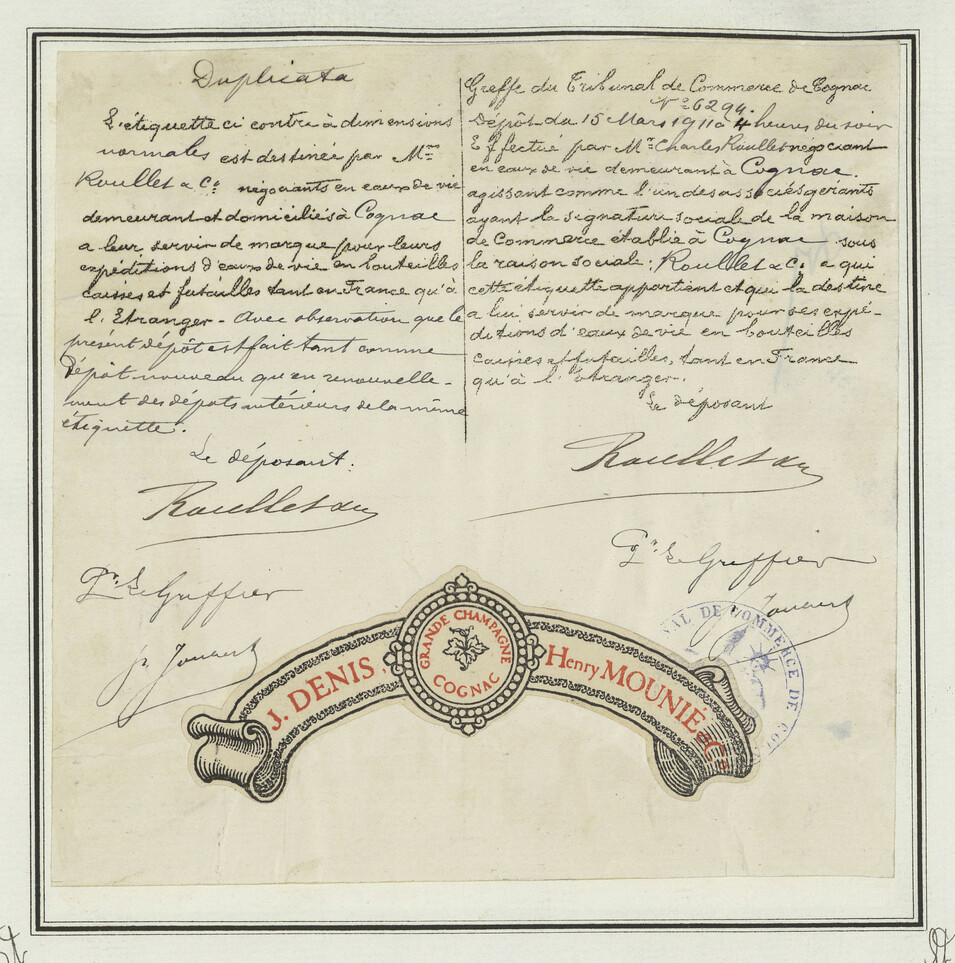 Duplicata
L'étiquette ci contre à dimensions
normales est destinée par Mrs
Roullet & Cie négociants en eaux de vie
demeurant et domiciliés à Cognac
a leur servir de marque pour leurs
expéditions d'eaux de vie en bouteilles
caisses et futailles tant en France qu'à
l'Etranger - Avec observation que le
présent dépôt est fait tant comme
dépôt nouveau qu'en renouvelle-
ment des dépôts antérieurs de la même
étiquette.
Le déposant.
Roullet &
Pr. Le Greffier
Greffe du Tribunal de Commerce de Cognac
No 6294.
Dépôt du 15 Mars 1911 à 4 heures du soir
Effectué par Mr Charles Roullet négociant
en eaux de vie demeurant à Cognac.
agissant comme l'un des associés gérants
ayant la signature sociale de la maison
de Commerce établie à Cognac sous
la raison sociale: Roullet & Cie a qui
cette étiquette appartient et qui la destine
a lui servir de marque pour ses expé-
ditions d'eaux de vie en bouteilles
caisses et futailles, tant en France
qu'à l'étranger.
Le déposant
Roullet &
Pr. Le Greffier
J. DENIS
GRANDE CHAMPAGNE
COGNAC
Henry MOUNIÉ & Co
DE COMMERCE DE